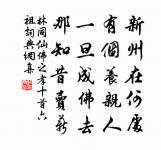 新州在何處
有個養親人
一旦成佛去
那知昔賣薪
林同仙佛之孝十首六
祖詞典網集